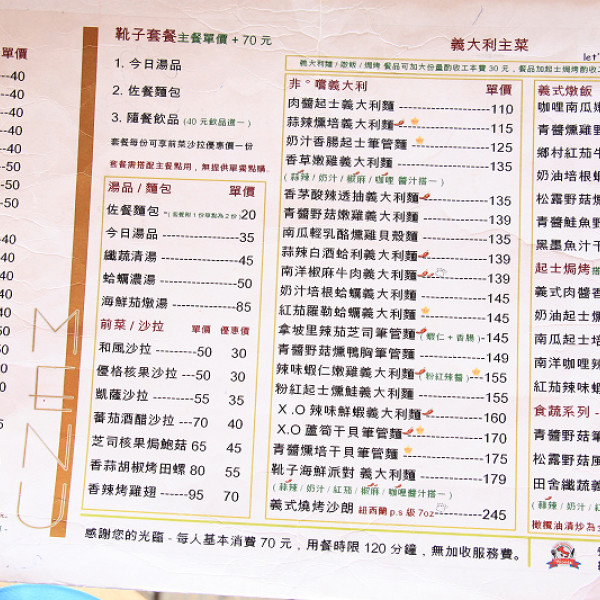 靴子套餐主餐單價 + 70 元
1. 今日湯品
2. 佐餐麵包
3. 隨餐飲品 (40 元飲品選一)
套餐每份可享前菜沙拉優惠價一份
套餐需搭配主餐點用，無提供單獨點購。
湯品 / 麵包 單價
佐餐麵包 -(套餐附 1 份單點為 2 份) 20
今日湯品 ------35
纖蔬清湯 ------45
蛤蠣濃湯 ------50
海鮮茄燉湯 ------85
前菜 / 沙拉 單價 優惠價
和風沙拉 ------50 30
優格核果沙拉 ---50 30
凱薩沙拉 ------55 35
蕃茄酒醋沙拉 ---70 40
芝司核果焗鮑菇 65 45
香蒜胡椒烤田螺 80 55
香辣烤雞翅 ------95 70
義大利主菜
義大利麵 / 燉飯 / 焗烤 餐品可加大份量酌收工本費 30 元，餐品加起士焗烤酌收工
非°嚐義大利 單價
肉醬起士義大利麵 110
蒜辣燻培義大利麵 115
奶汁香腸起士筆管麵 125
香草嫩雞義大利麵 135
(蒜辣 / 奶汁 / 椒麻 / 咖哩 醬汁搭一)
香茅酸辣透抽義大利麵 135
青醬野菇嫩雞義大利麵 139
南瓜輕乳酪燻雞貝殼麵 135
蒜辣白酒蛤利義大利麵 139
南洋椒麻牛肉義大利麵 139
奶汁培根蛤蠣義大利麵 145
紅茄羅勒蛤蠣義大利麵 145
拿坡里辣茄芝司筆管麵 (蝦仁 + 香腸) -145
青醬野菇燻鴨胸筆管麵 149
辣味蝦仁嫩雞義大利麵 (粉紅辣醬) -155
粉紅起士燻鮭義大利麵 155
X.O 辣味鮮蝦義大利麵 160
X.O 蘆筍干貝筆管麵 170
青醬燻培干貝筆管麵 175
靴子海鮮派對 義大利麵 179
(蒜辣 / 奶汁 / 紅茄 / 椒麻 / 咖哩醬汁搭一)
義式燒烤沙朗 紐西蘭 p.s 級 7oz 245
let'
義式燉飯
咖哩南瓜嫩
青醬燻雞野
鄉村紅茄牛
奶油培根
松露野菇燻
青醬鮭魚野
黑墨魚汁干
起士焗烤
義式肉醬
奶油起士燻
青醬野菇
南瓜起士
南洋咖哩辣
紅茄辣味
食蔬系列 -
青醬野菇筆
松露野菇風
田舍纖蔬義
(蒜辣 / 奶汁 / 紅
橄欖油清炒為主
MENU
感謝您的光臨 - 每人基本消費 70 元，用餐時限 120 分鐘，無加收服務費。